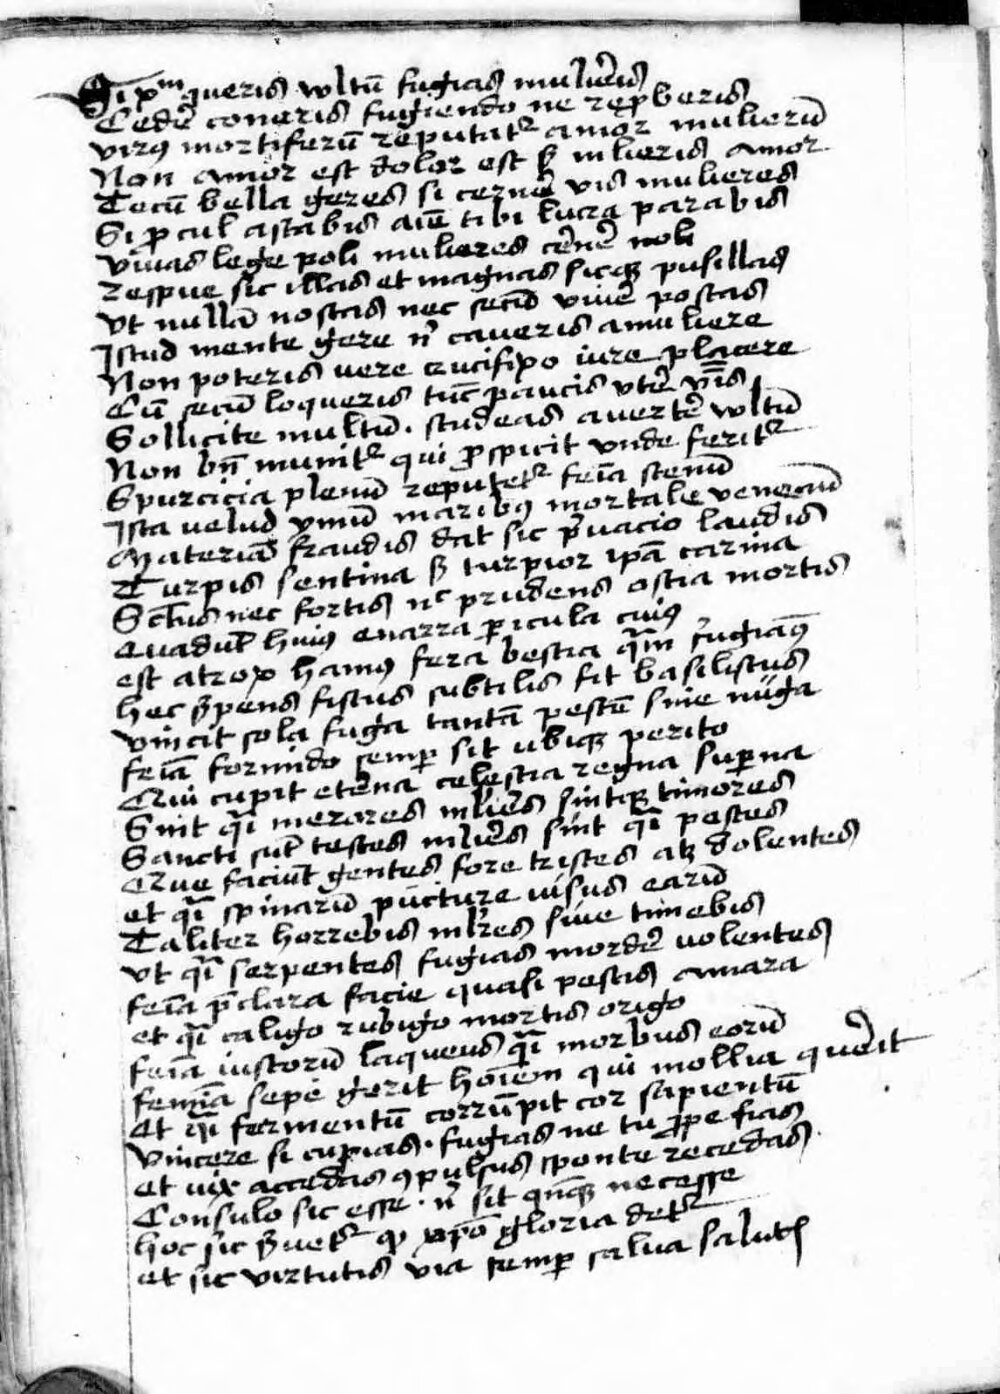 Si xpm queris wltū fugias muliēis
Cedē coneris fugiendo ne repberis
virꝯ mortiferū reputatr amor mulierū
Non amor est dolor est mlieris amor
Tecū bella geres si cernē vis mulieres
Si ꝓcul astabis aīe tibi lucra parabis
vivas lege poli mulieres cēnē noli
Respue sic illas et magnas sicqꝫ pusillas
Vt nullā noscas nec secūd vivē poscas
Istud mente gere nͥ caveris a muliere
Non poteris vere crucifixo iure placere
Cū secūd loqueris tūc paucis vtē vbīs
Sollicite multū . studeas avertē wltū
Non bn̄ munitr qui ꝓspicit unde feritr
Spurcicia plenū reputetr feīa stenū
Ista velud vnuū maribꝯ mortale venenū
Materiā fraudis dat sic pͥvacio laudis
Turpis sentina turpior ipā carina
Sctūs nec fortis nc prudens ostia mortis
Evadūt huiꝯ enarra ꝑicula cuiꝯ
est atrox hamꝯ fera bestia qām fugiamꝯ
hec ꝑpens fiscus subtilis fit basiliscus
vincit sola fuga tantā pestē sine nuga
feīa formido semꝑ sit ubiqꝫ perito
Qui cupit etēna celestia regna suꝑna
Sint qͣi merores mliēs sintqꝫ timores
Sancti sūt testes mliēs sūt qͣi pestes
Que faciūt gentes fore tristes atqꝫ dolentes
et qͣi spinarū pūcture visus earū
Taliter horrebis mlr̄es sive timebis
Vt qͣi serpentes fugias mordē volentes
feīa pͣclara facie quasi pestis amara
et qͣi caligo rubigo mortis origo
feīa iustorū laqueus qͣi morbus eorū
femīa sepe gerit hoīem qui mollia quēit
Et qͣi fermentū corrūpit cor sapientū
Vincere si cupias . fugias ne tu ꝓpe fias
et vix accedas ꝯpulsus sponte recedas
Consulo sic esse . nͥ sit qnqꝫ necesse
hoc sic svetr qꝫ xpō gloria detr
et sic virtutis via semꝑ salva salutis